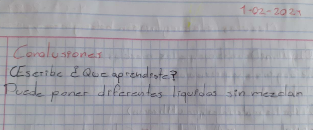 1-02-2021
Conclusiones
Escribe ¿Que aprendiste?
Puede poner diferentes liquidos sin mezclar